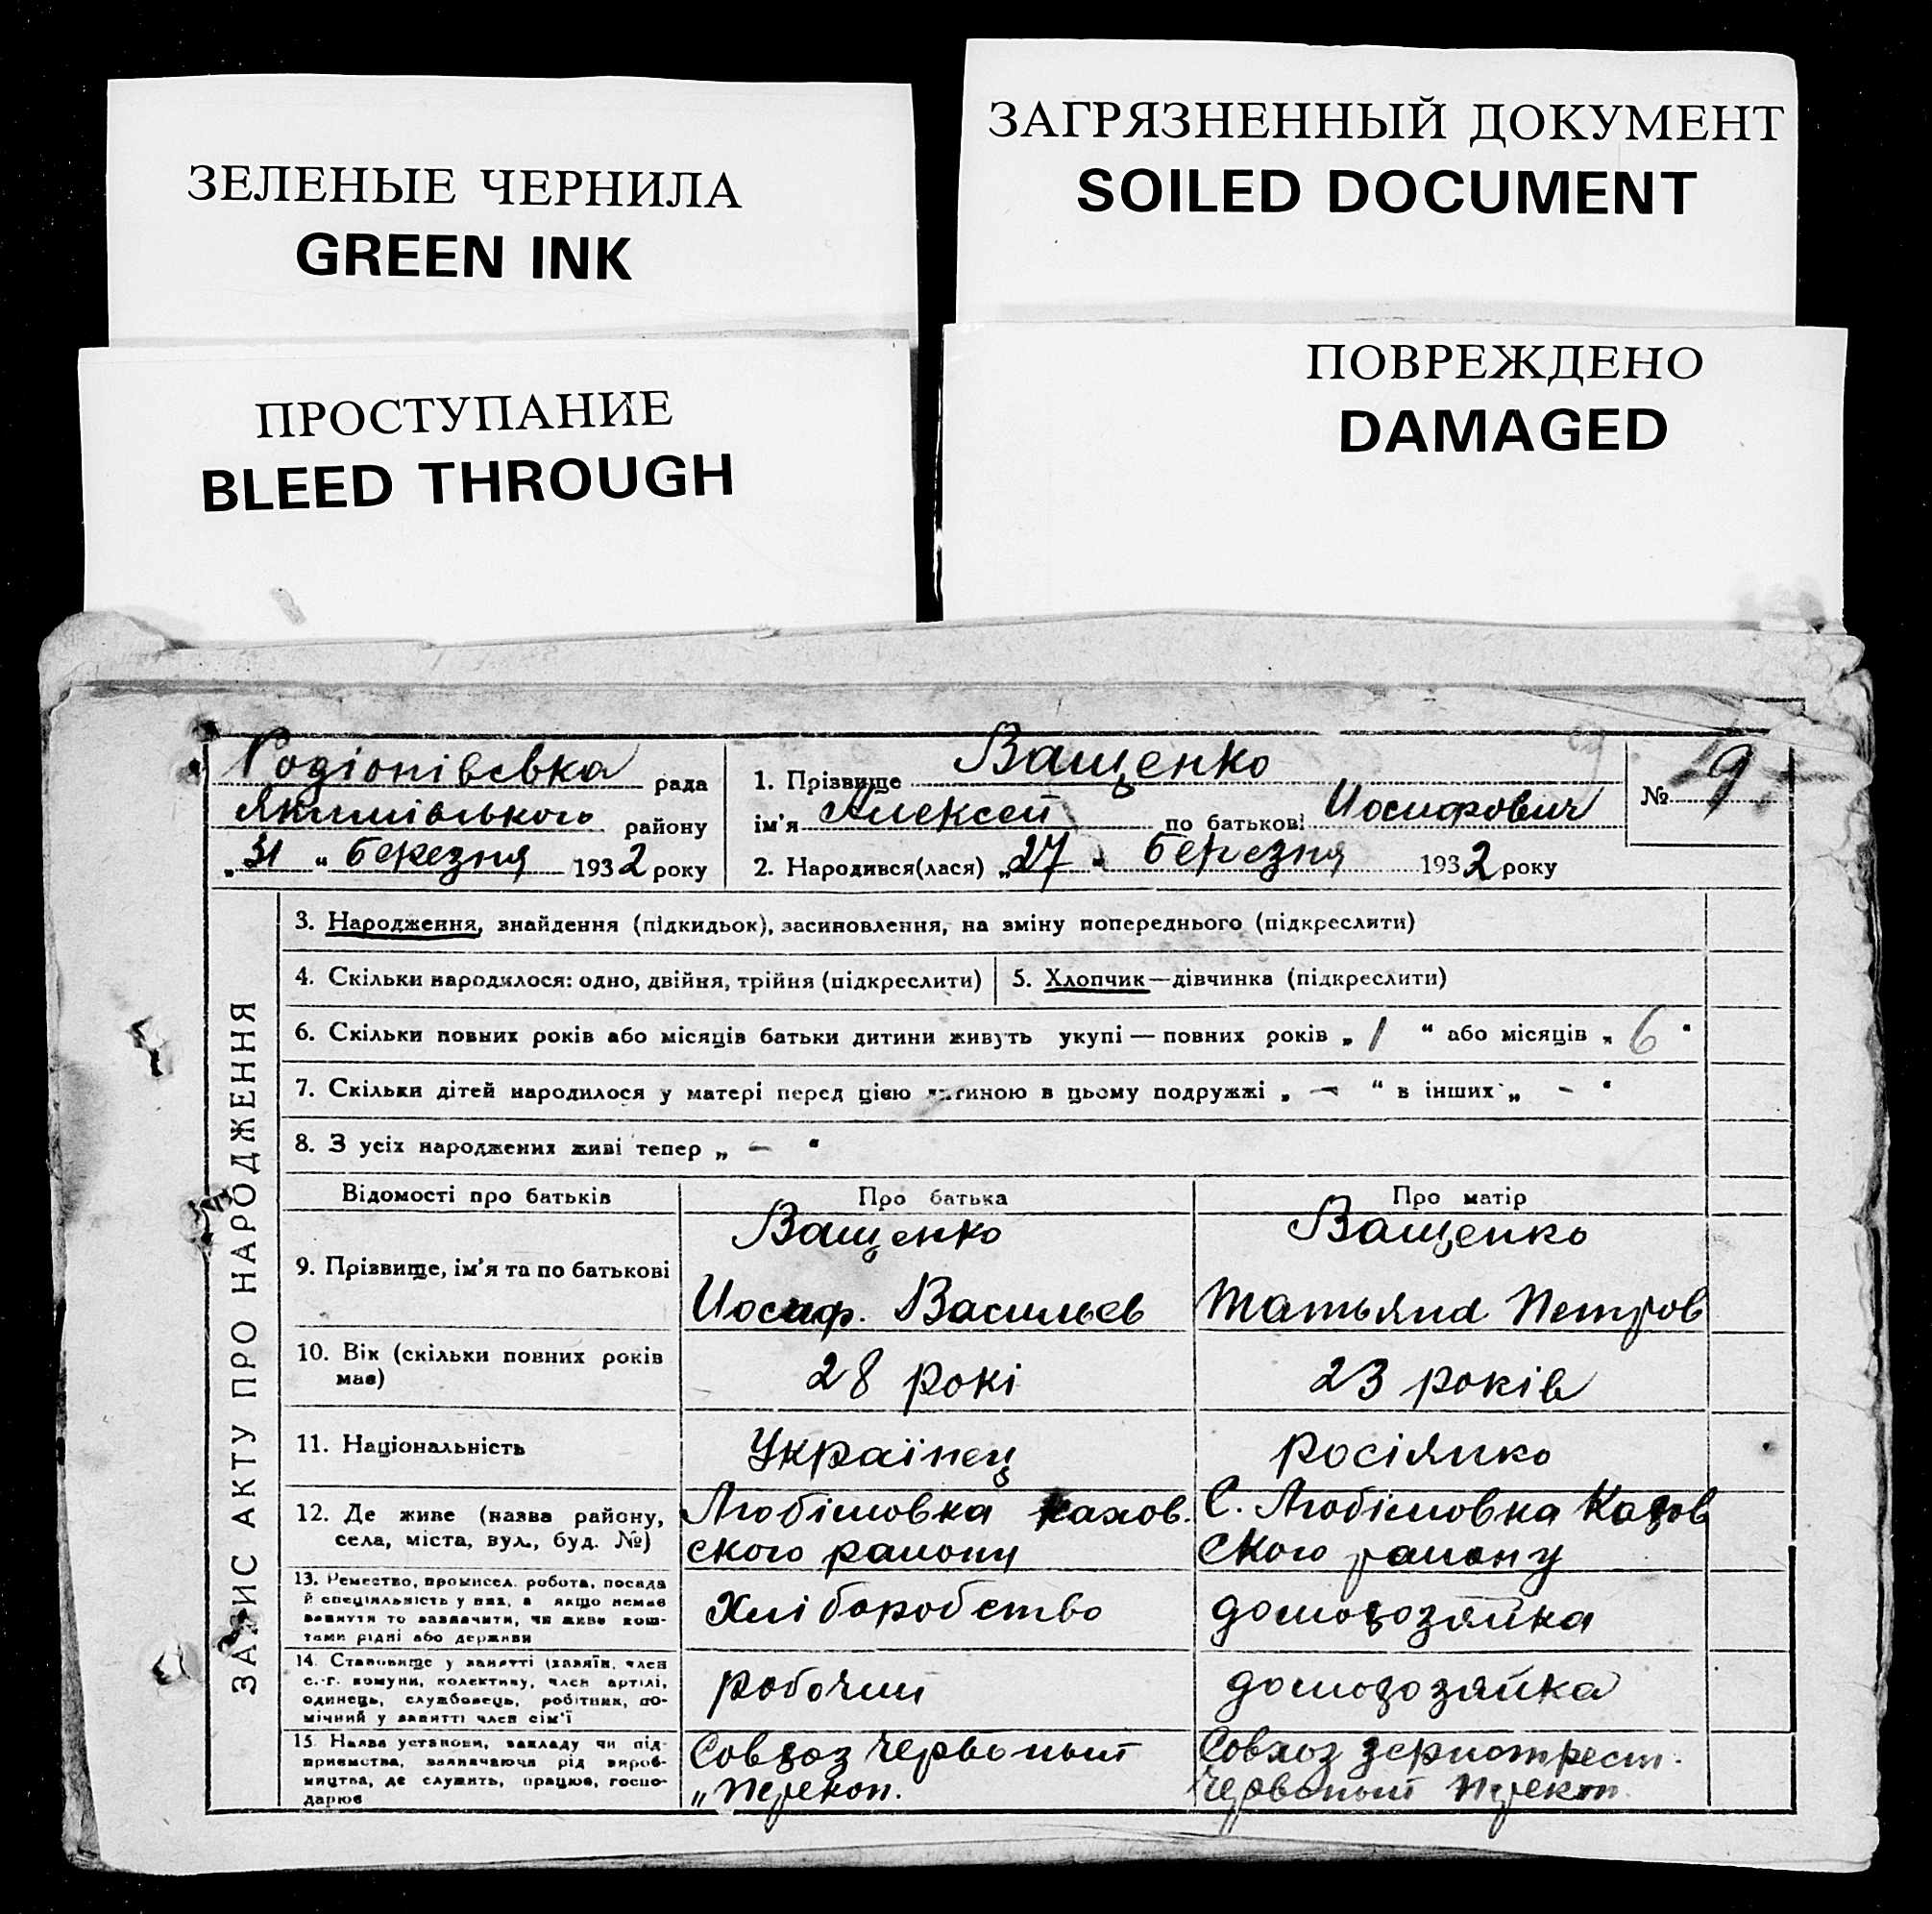 ЗЕЛЕНЫЕ ЧЕРНИЛА
GREEN INK
ЗАГРЯЗНЕННЫЙ ДОКУМЕНТ
SOILED DOCUMENT
ПРОСТУПАНИЕ
BLEED THROUGH
ПОВРЕЖДЕНО
DAMAGED
Родіонівська рада
Якимівського району
„31“ березня 1932 року
1. Прізвище Ващенко
ім'я Алексей по батькові Иосифович
2. Народився(лася) „27“ березня 1932 року
№ 9
ЗАПИС АКТУ ПРО НАРОДЖЕННЯ
3. Народження, знайдення (підкидьок), засиновлення, на зміну попереднього (підкреслити)
4. Скільки народилося: одно, двійня, трійня (підкреслити)
5. Хлопчик—дівчинка (підкреслити)
6. Скільки повних років або місяців батьки дитини живуть укупі — повних років „1“ або місяців „6“
7. Скільки дітей народилося у матері перед цією дитиною в цьому подружжі „ — “ в інших „ — “
8. З усіх народжених живі тепер „ — “
Відомості про батьків
Про батька
Про матір
9. Прізвище, ім'я та по батькові
Ващенко
Иосиф. Васильев
Ващенко
Татьяна Петров
10. Вік (скільки повних років
має)
28 рокі
23 років
11. Національність
Українец
росіянко
12. Де живе (назва району,
села, міста, вул., буд. №)
Любімовка Кахов.
ского району
С. Любімовка Кахов
ского району
13. Ремество, промисел, робота, посада
й спеціяльність у них, а якщо немає
заняття то зазначити, чи живе кош-
тами рідні або держави
Хліборобство
домохозяйка
14. Становище у занятті (хазяїн, член
с.-г. комуни, колективу, член артілі,
одинець, службовець, робітник, по-
мічний у занятті член сім'ї
робочий
домохозяйка
15. Назва установи, закладу чи під-
приємства, зазначаючи рід вироб-
ництва, де служить, працює, госпо-
дарює
Совхоз Червоный
„Перекоп.
Совхоз зернотрест.
Червоный Перекоп.